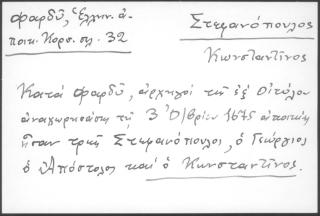 Φαρδῦ, Ἑλλην. ἀ-
ποικ. Κορσ. σλ. 32
Στεφανόπουλος
Κωνσταντῖνος
Κατά Φαρδῦ, ἀρχηγοί τῆς ἐξ Οἰτύλου
ἀναχωρησάσης τῇ 3 Ὀ/βρίου 1675 ἀποικίας
ἦσαν τρεῖς Στεφανόπουλοι, ὁ Γεώργιος
ὁ Ἀπόστολος καί ὁ Κωνσταντῖνος.